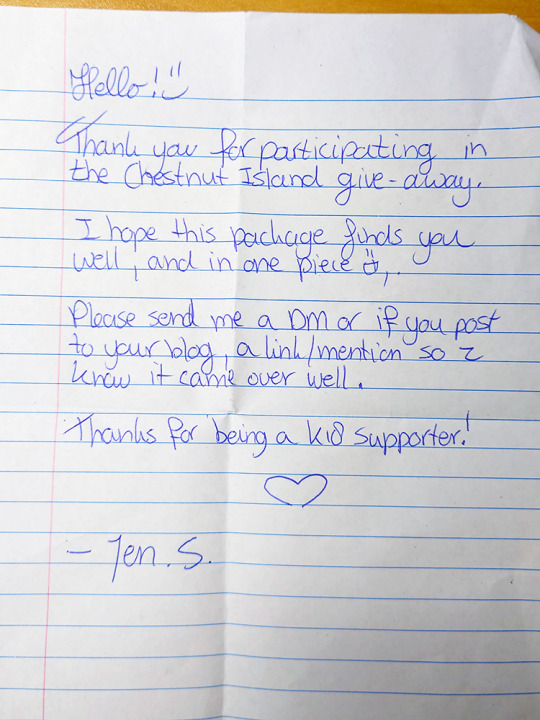 Hello! :)
Thank you for participating in
the Chestnut Island give-away.
I hope this package finds you
well, and in one piece :),.
Please send me a DM or if you post
to your blog, a link/mention so I
know it came over well.
Thanks for being a K18 supporter!
♡
- Jen. S.